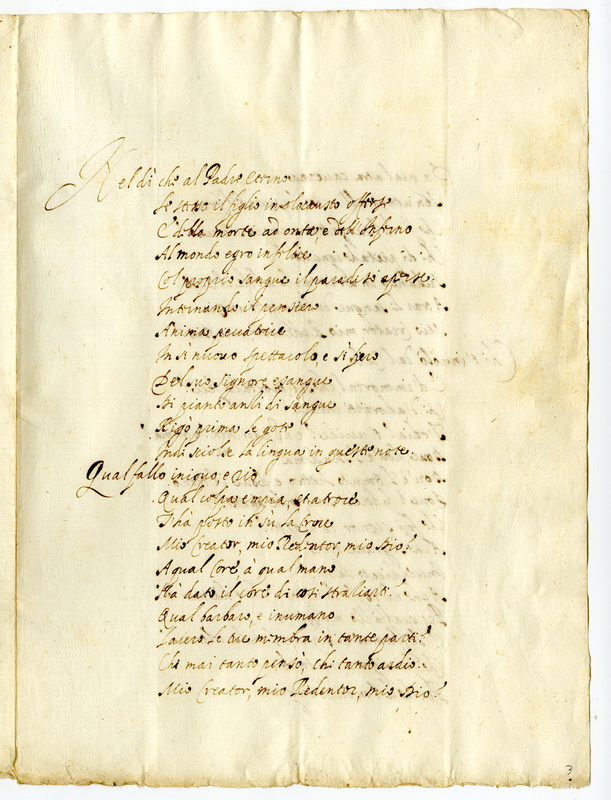 Nel dì che al Padre Eterno
Se stesso il figlio in olocausto offerse
E della morte ad onta, e dell Inferno
Al mondo egro infelice
Col proprio sangue il paradiso aperse
Internando il pensiero
Anima peccatrice
In sì nuovo spettacolo, e sì fiero
Del suo Signore esangue
Di pianto anzi di sangue
Rigò prima le gote
Indi sciolse la lingua in queste note.
Qual fallo iniquo, e rio
Qual colpa empia, et atroce
T'hà posto iti sù la Croce
Mio Creator, mio Redentor, mio Dio?
A qual Core à qual mano
Hà dato il core di così stratiarti?
Qual barbaro, e inumano
Lacerò le tue membra in tante parti?
Chi mai tanto pensò, chi tanto ardio
Mio Creator, mio Redentor, mio Dio?
3